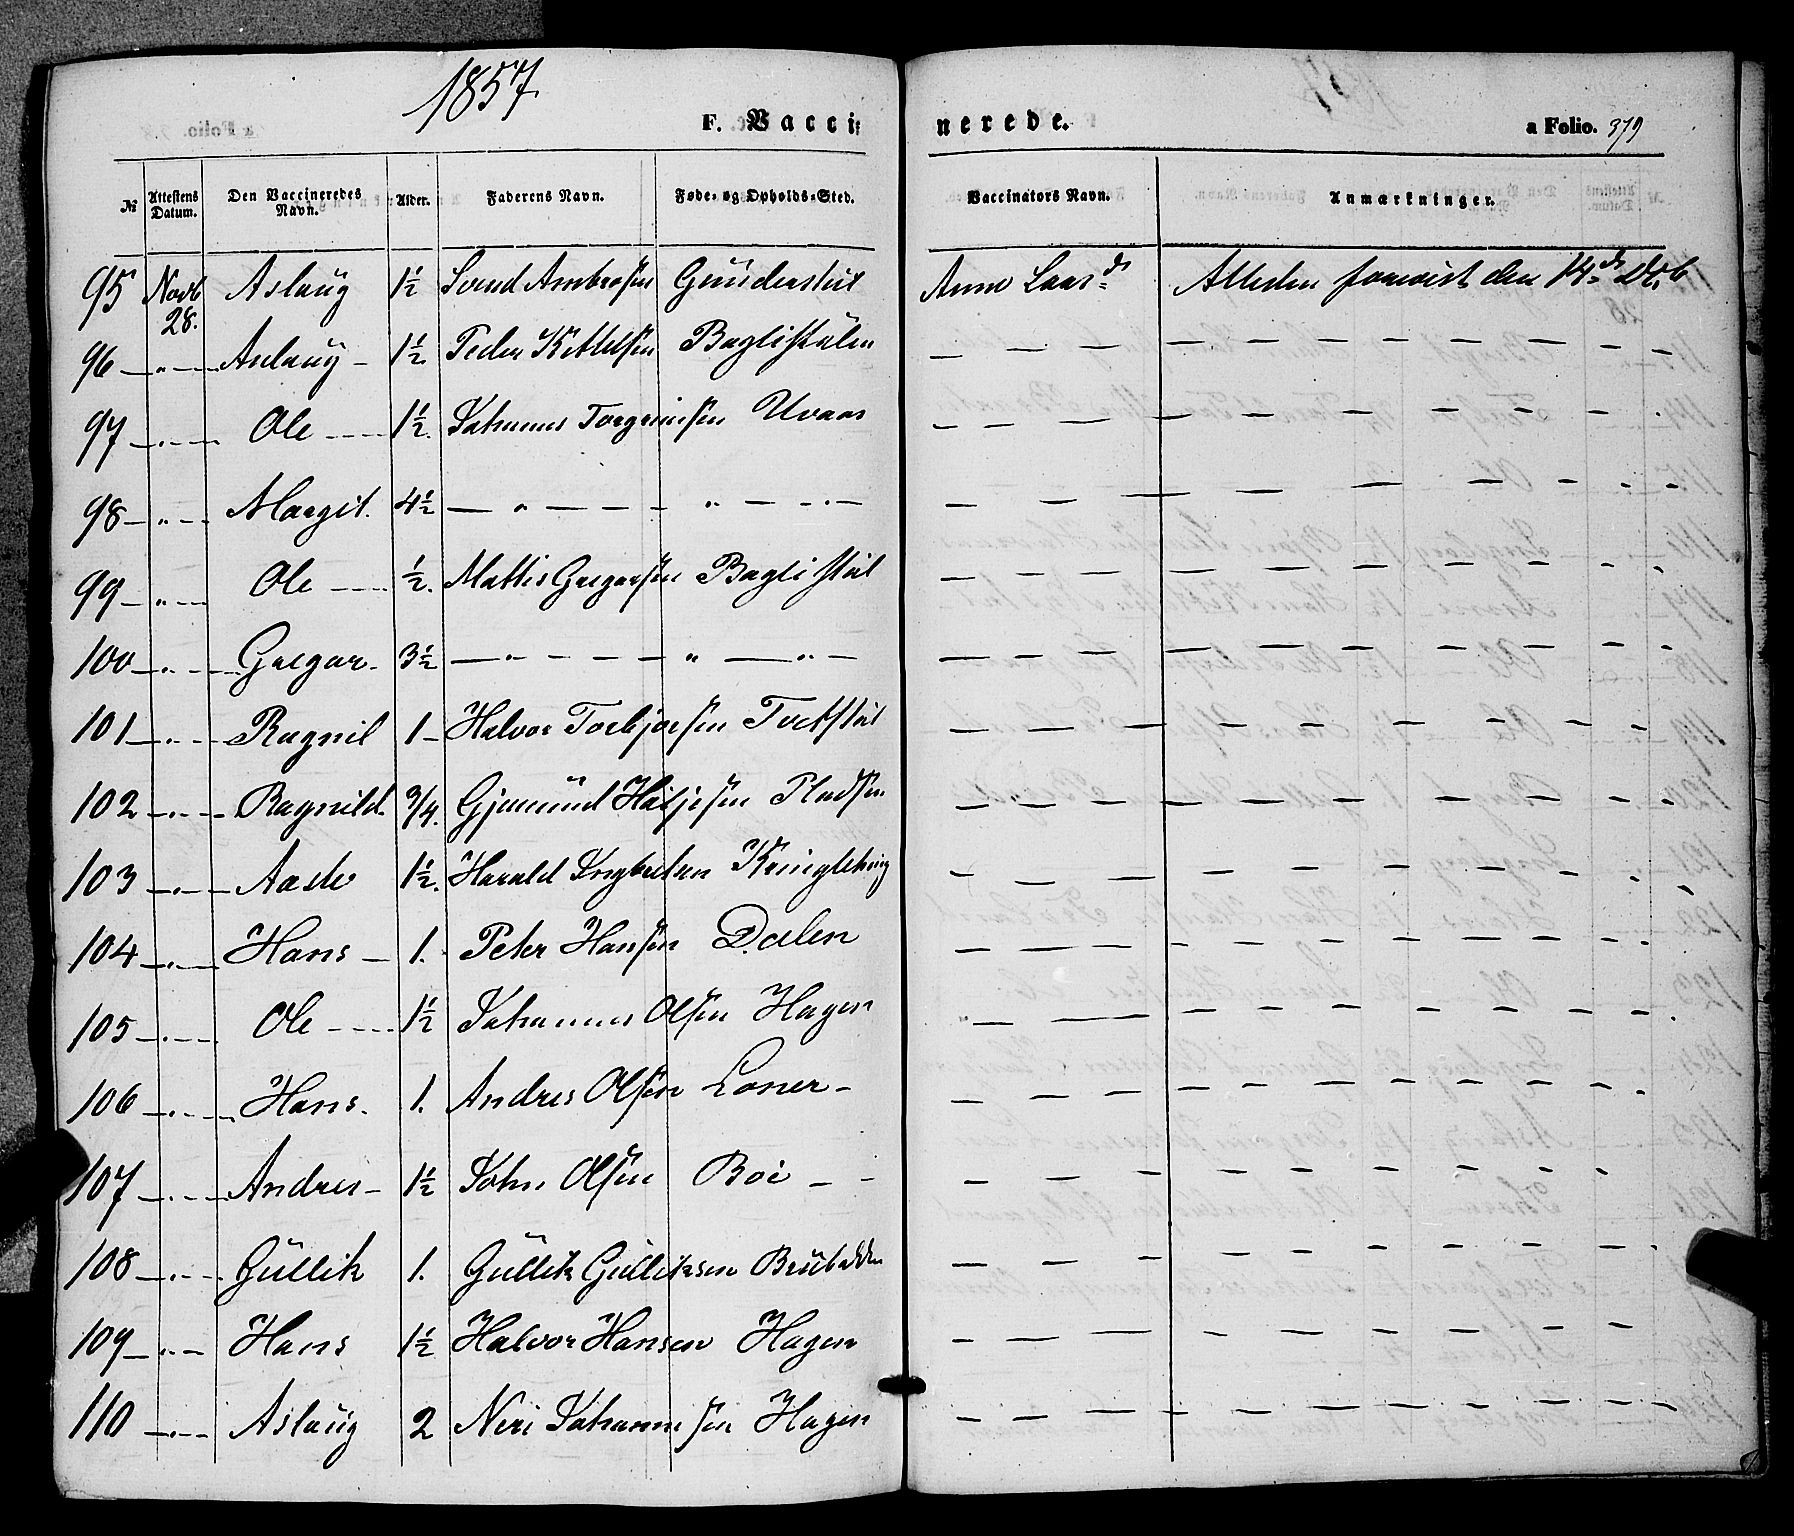 1857
F. Vacci=
nerede.
a Folio. 379
№ Attestens Datum. Den Vaccineredes Navn. Alder. Faderens Navn. Føde- og Opholds-Sted. Vaccinators Navn. Anmærkninger.
95 Novb 28. Aslaug 1½ Svend Ambrosen Grüderstül Anne Larsd. Attesten forevist den 14de Dcb
96 — " — Aslaug — 1½ Peder Kittelsen Baglistülen — — —
97 — " — Ole — 1½ Johannes Torgrimsen Uvaas — — —
98 — " — Margit. 4½ — " — — — " — — — — —
99 — " — Ole — ½. Mattis Gregarsen Baglistül — — —
100 — " — Gregar — 3½ — " — — — " — " — — — —
101 — " — Ragnil 1 — Halvor Torbjorsen Tvetstül — — —
102 — " — Ragnild. 3/4. Gjermünd Pladsen — — —
103 — " — Aaste 1½. Harald Ingbretsen — — —
104 — " — Hans — 1. Peter Hansen Dalen — — —
105 — " — Ole — 1½ Johannes Olsen Hagen — — —
106 — " — Hans. 1. Andres Olsen Loner — — — —
107 — " — Andres — 1½ John Olsen Boi — — — — —
108 — " — Güllik 1. Güllik Gülliksen — — —
109 — " — Hans 1½ Halvor Hansen Hagen — — —
110 — " — Aslaüg 2 Neri Johannessen Hagen — — —